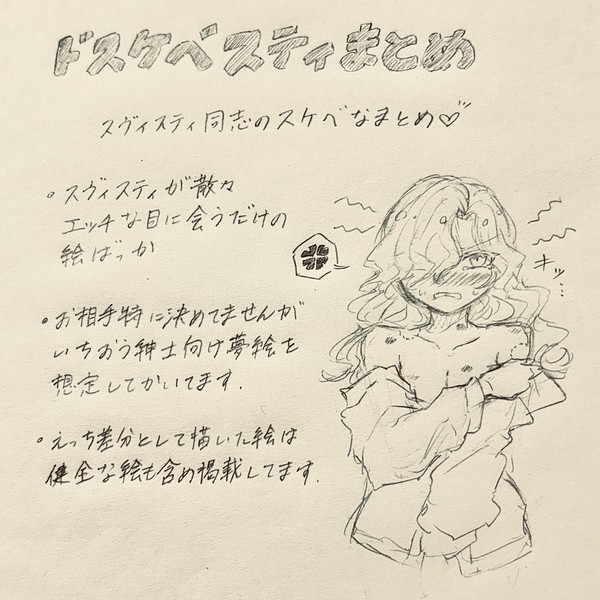 ドスケベスティまとめ
スヴィスティ同志のスケベなまとめ♡
。スヴィスティが散々
エッチな目に会うだけの
絵ばっか
。お相手特に決めてませんが
いちおう紳士向け夢絵を
想定してかいてます.
。えっち差分として描いた絵は
健全な絵も含め掲載してます.
キッ…